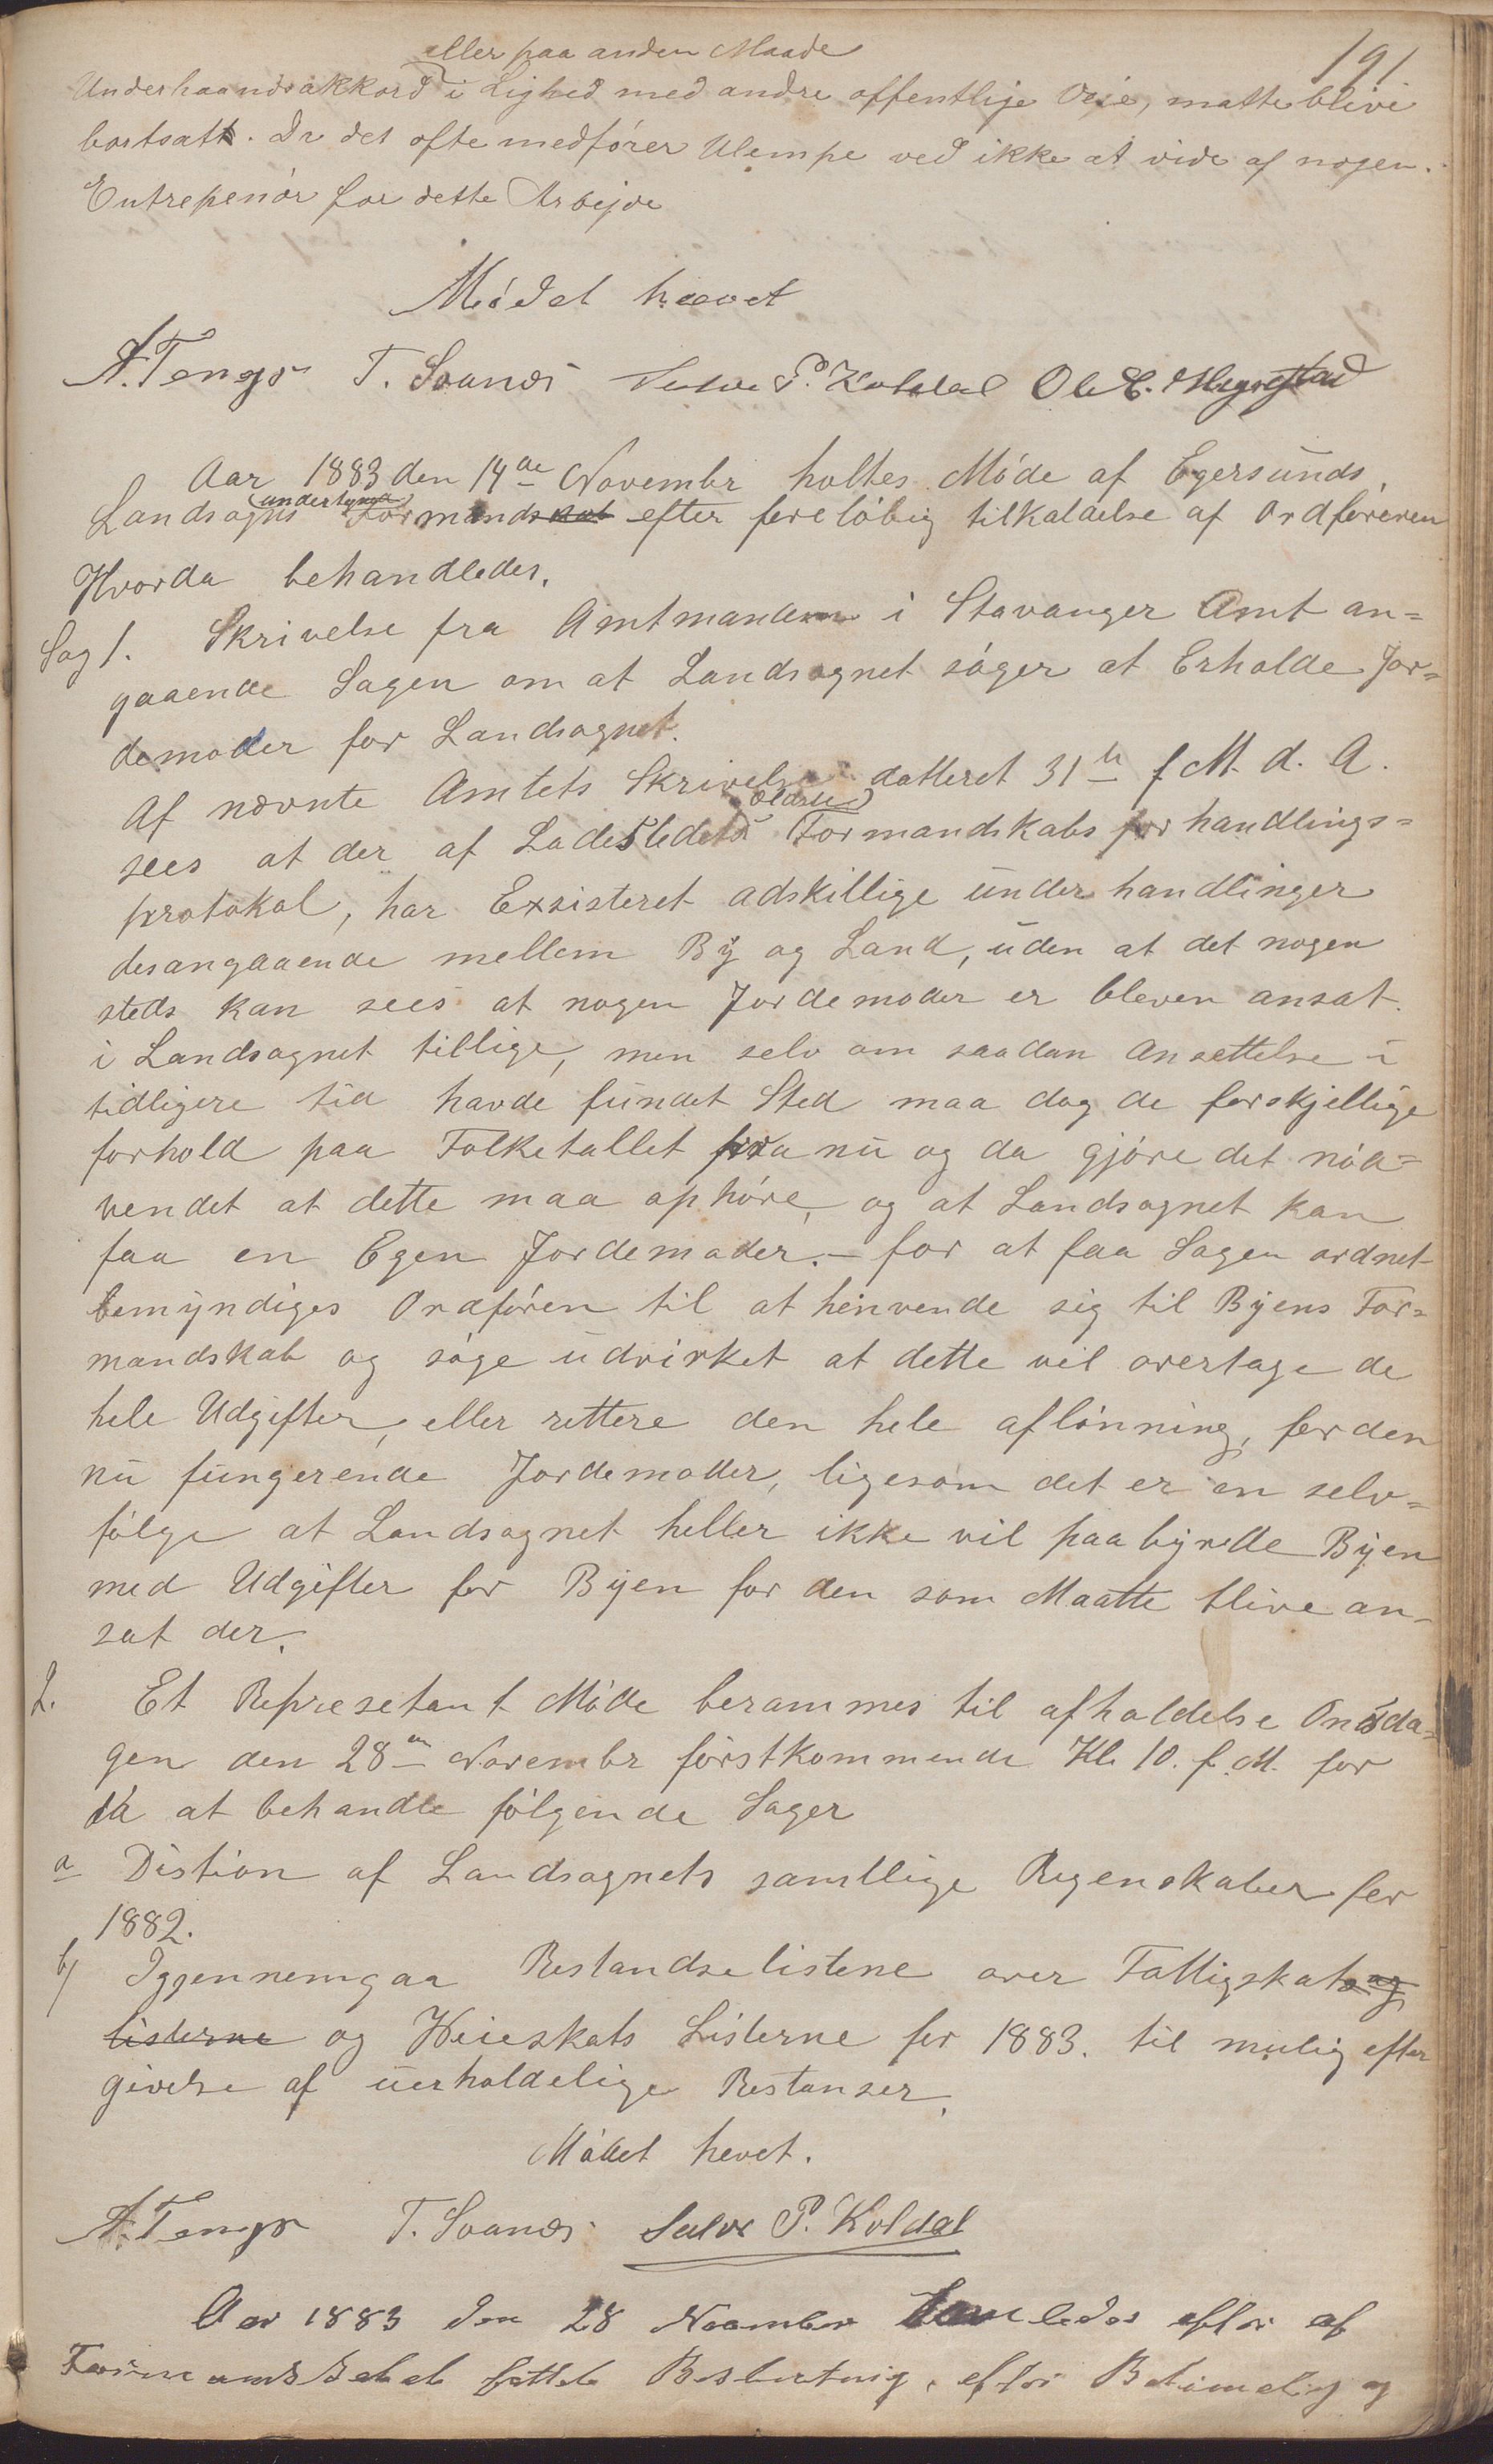 191.
eller paa anden Maade
Underhaandsakkord i Lighed med andre offentlige Veie, maatte blive
bortsatt. Da det ofte medfører Ulempe ved ikke at vide af nogen
Entrepenør for dette Arbejde
Mødet hævet
A. Tengs T. Svanes Salve P. Koldal Ole E. Mygestad
Aar 1883 den 14de Novembr holtes Møde af Egersunds
Landsogns (undertegnede) Formandskab efter foreløbig tilkaldelse af Ordføreren
Hvorda behandledes.
Sag 1. Skrivelse fra Amtmanden i Stavanger Amt an=
gaaende Sagen om at Landsognet søger at Erholde Jor=
demoder for Landsognet.
Af nævnte Amtets Skrivelse datteret 31te f M. d. A.
sees at der af Ladestedets ældste Formandskabs forhandlings=
protokol, har Exsisteret adskillige underhandlinger
desangaaende mellem By og Land, uden at det nogen
steds kan sees at nogen Jordemoder er bleven ansat
i Landsognet tillige, men selv om saadan Ansettelse i
tidligere tid havde fundet Sted maa dog de forskjellige
forhold paa Folketallet fra nu og da gjøre det nød=
vendet at dette maa ophøre, og at Landsognet kan
faa en Egen Jordemoder. – for at faa Sagen ordnet
bemyndiges Ordføren til at henvende sig til Byens For=
mandskab og søge udvirket at dette vil overtage de
hele Udgifter, eller rettere den hele aflønning, for den
nu fungerende Jordemoder, ligesom det er en selv=
følge at Landsognet heller ikke vil paabyrdde Byen
med Udgifter for Byen for den som Maatte blive an-
sat der.
2. Et Represetant Møde berammes til afholdelse Onsda=
gen den 28de Novembr førstkommende Kl. 10. f. M. for
da at behandle følgende Sager
a Distion af Landsognets samtlige Regenskaber for
1882.
b) Igjennemgaa Restandselistene over Fattigskats og
listerne og Weieskats Listerne for 1883. til mulig efter
givelse af uerholdelige Restanser.
Mødet hevet.
A. Tengs T. Svanes Salve P. Koldal
Aar 1883 den 28 November samledes efter af
Formandskabet fattede Beslutning, efter Betimelig og